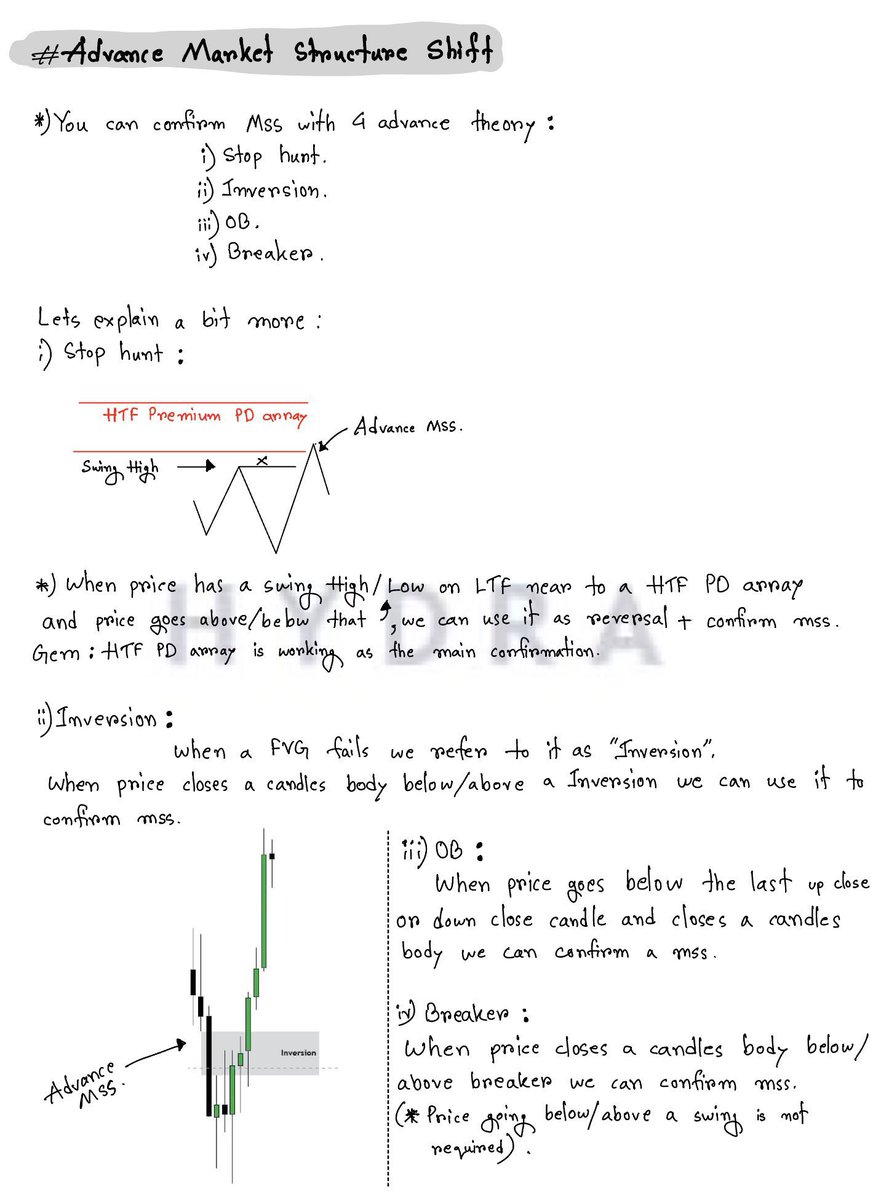 #Advance Market Structure Shift
*) You can confirm MSS with 4 advance theory :
i) Stop hunt.
ii) Inversion.
iii) OB.
iv) Breaker.
Lets explain a bit more :
i) Stop hunt :
HTF Premium PD array
Advance MSS.
Swing High
x
*) When price has a swing High/Low on LTF near to a HTF PD array
and price goes above/below that , we can use it as reversal + confirm mss.
Gem : HTF PD array is working as the main confirmation.
HYDRA
ii) Inversion :
When a FVG fails we refer to it as "Inversion".
When price closes a candles body below/above a Inversion we can use it to
confirm mss.
Inversion
Advance
MSS.
iii) OB :
When price goes below the last up close
or down close candle and closes a candles
body we can confirm a mss.
iv) Breaker :
When price closes a candles body below/
above breaker we can confirm mss.
(* Price going below/above a swing is not
required).